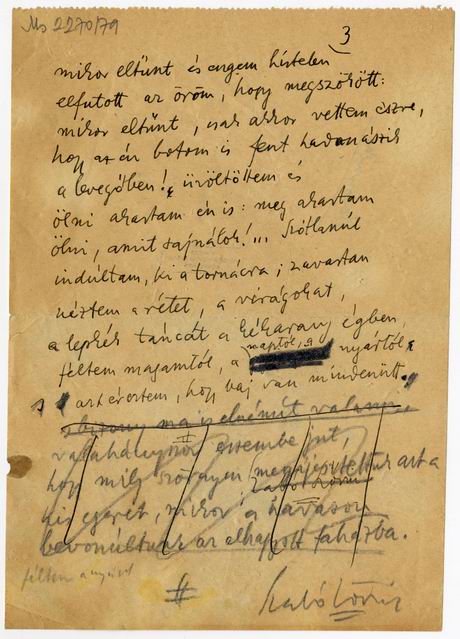 Ms 2270/79
3
mikor eltünt és engem hirtelen
elfutott az öröm, hogy megszökött:
mikor eltünt, csak akkor vettem észre,
hogy az én botom is fent hadonászik
a levegőben! üvöltöttem és
ölni akartam én is: meg akartam
ölni, amit sajnálok!... Szótlanúl
indúltam, ki a tornácra; zavartan
néztem a rétet, a virágokat,
a lepkék táncát a kékarany égben,
naptól, a
féltem magamtól, a nyártól,
azt éreztem, hogy baj van mindenütt.
valahányszor eszembe jut,
hogy mily szörnyen megijesztettük azt a
kis egeret, mikor a havason
bevonúltunk az elhagyott faházba.
féltem a nyártól
#
Szabó Lőrinc